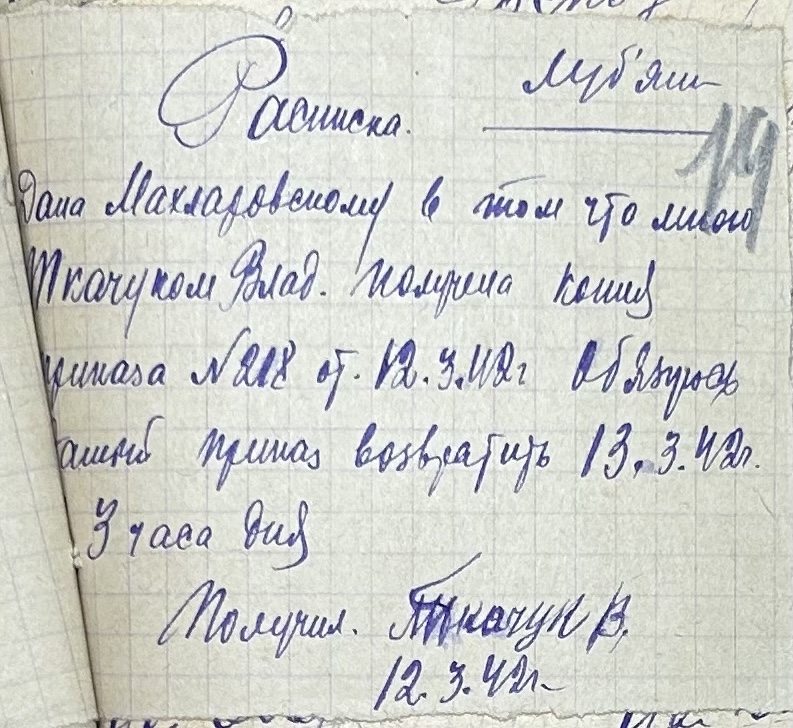 Луб'яни
Расписка.
19
Дана Махларовскому в том что мною
Ткачуком Влад. получена копия
приказа №218 от. 12.3.42г Обязуюсь
приказ возвратить 13.3.42г.
3 часа дня
Получил. Ткачук В.
12.3.42г.